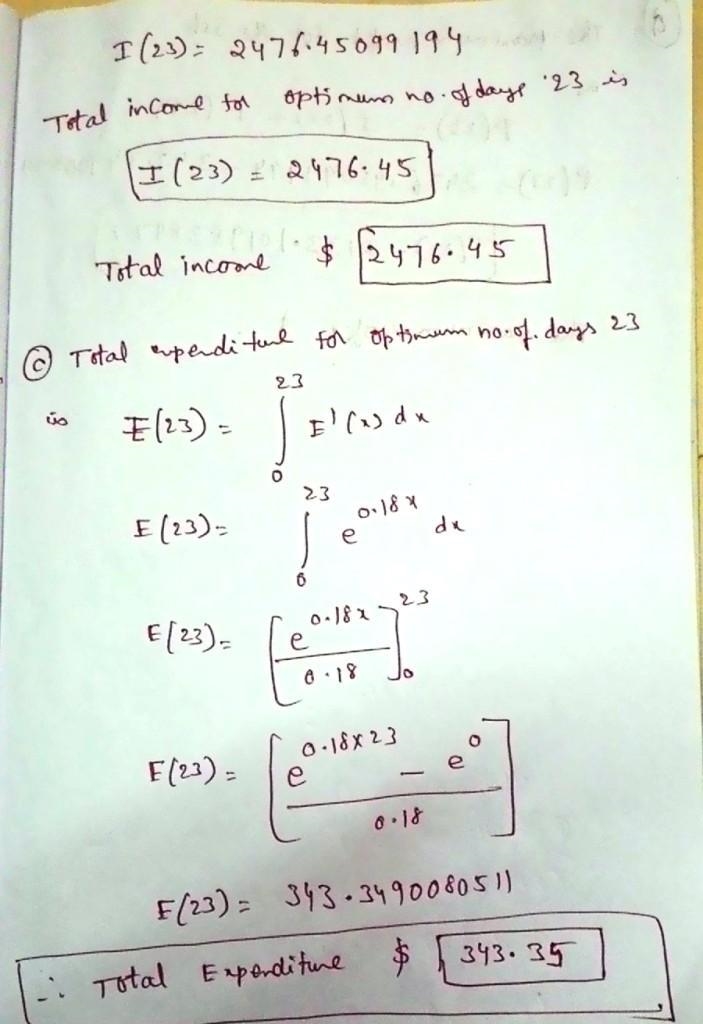 I(23) = 2476.45099194
Total income for optimum no. of days '23 is
I(23) = 2476.45
Total income $ 2476.45
(c) Total expenditure for optimum no. of. days 23
is E(23) = ∫₀²³ E'(x) dx
E(23) = ∫₀²³ e^0.18x dx
E(23) = [e^0.18x / 0.18]₀²³
E(23) = [e^0.18×23 − e^0 / 0.18]
E(23) = 343.3490080511
∴ Total Expenditure $ 343.35